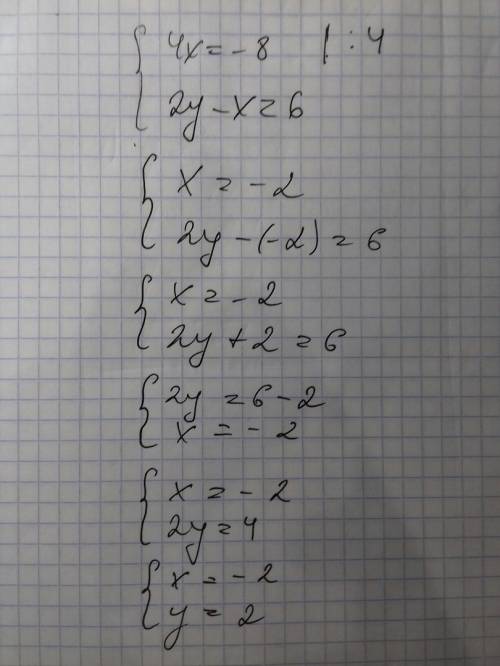 4x = -8 | : 4
2y - x = 6
x = -2
2y - (-2) = 6
x = -2
2y + 2 = 6
2y = 6 - 2
x = -2
x = -2
2y = 4
x = -2
y = 2